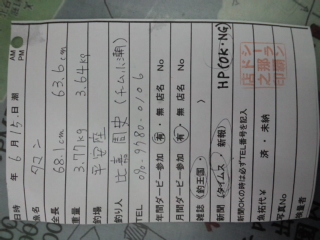 日時　　年 6月 15日 潮　　AM PM
魚名　タマン
全長　68.1cm　63.6cm
重量　3.77kg　3.64kg
釣場　平安座
釣り人　比嘉 周史（チーム小潮）
TEL　090-9780-0106
年間ダービー参加　有・無　店名　No
月間ダービー参加　有・無　店名　No
雑誌（釣王国・　　）
新聞（タイムス　新報）　HP(OK・NG)
新聞OKの時は必ずTEL番号を記入
魚拓代￥　済・未納
写真No
検量者